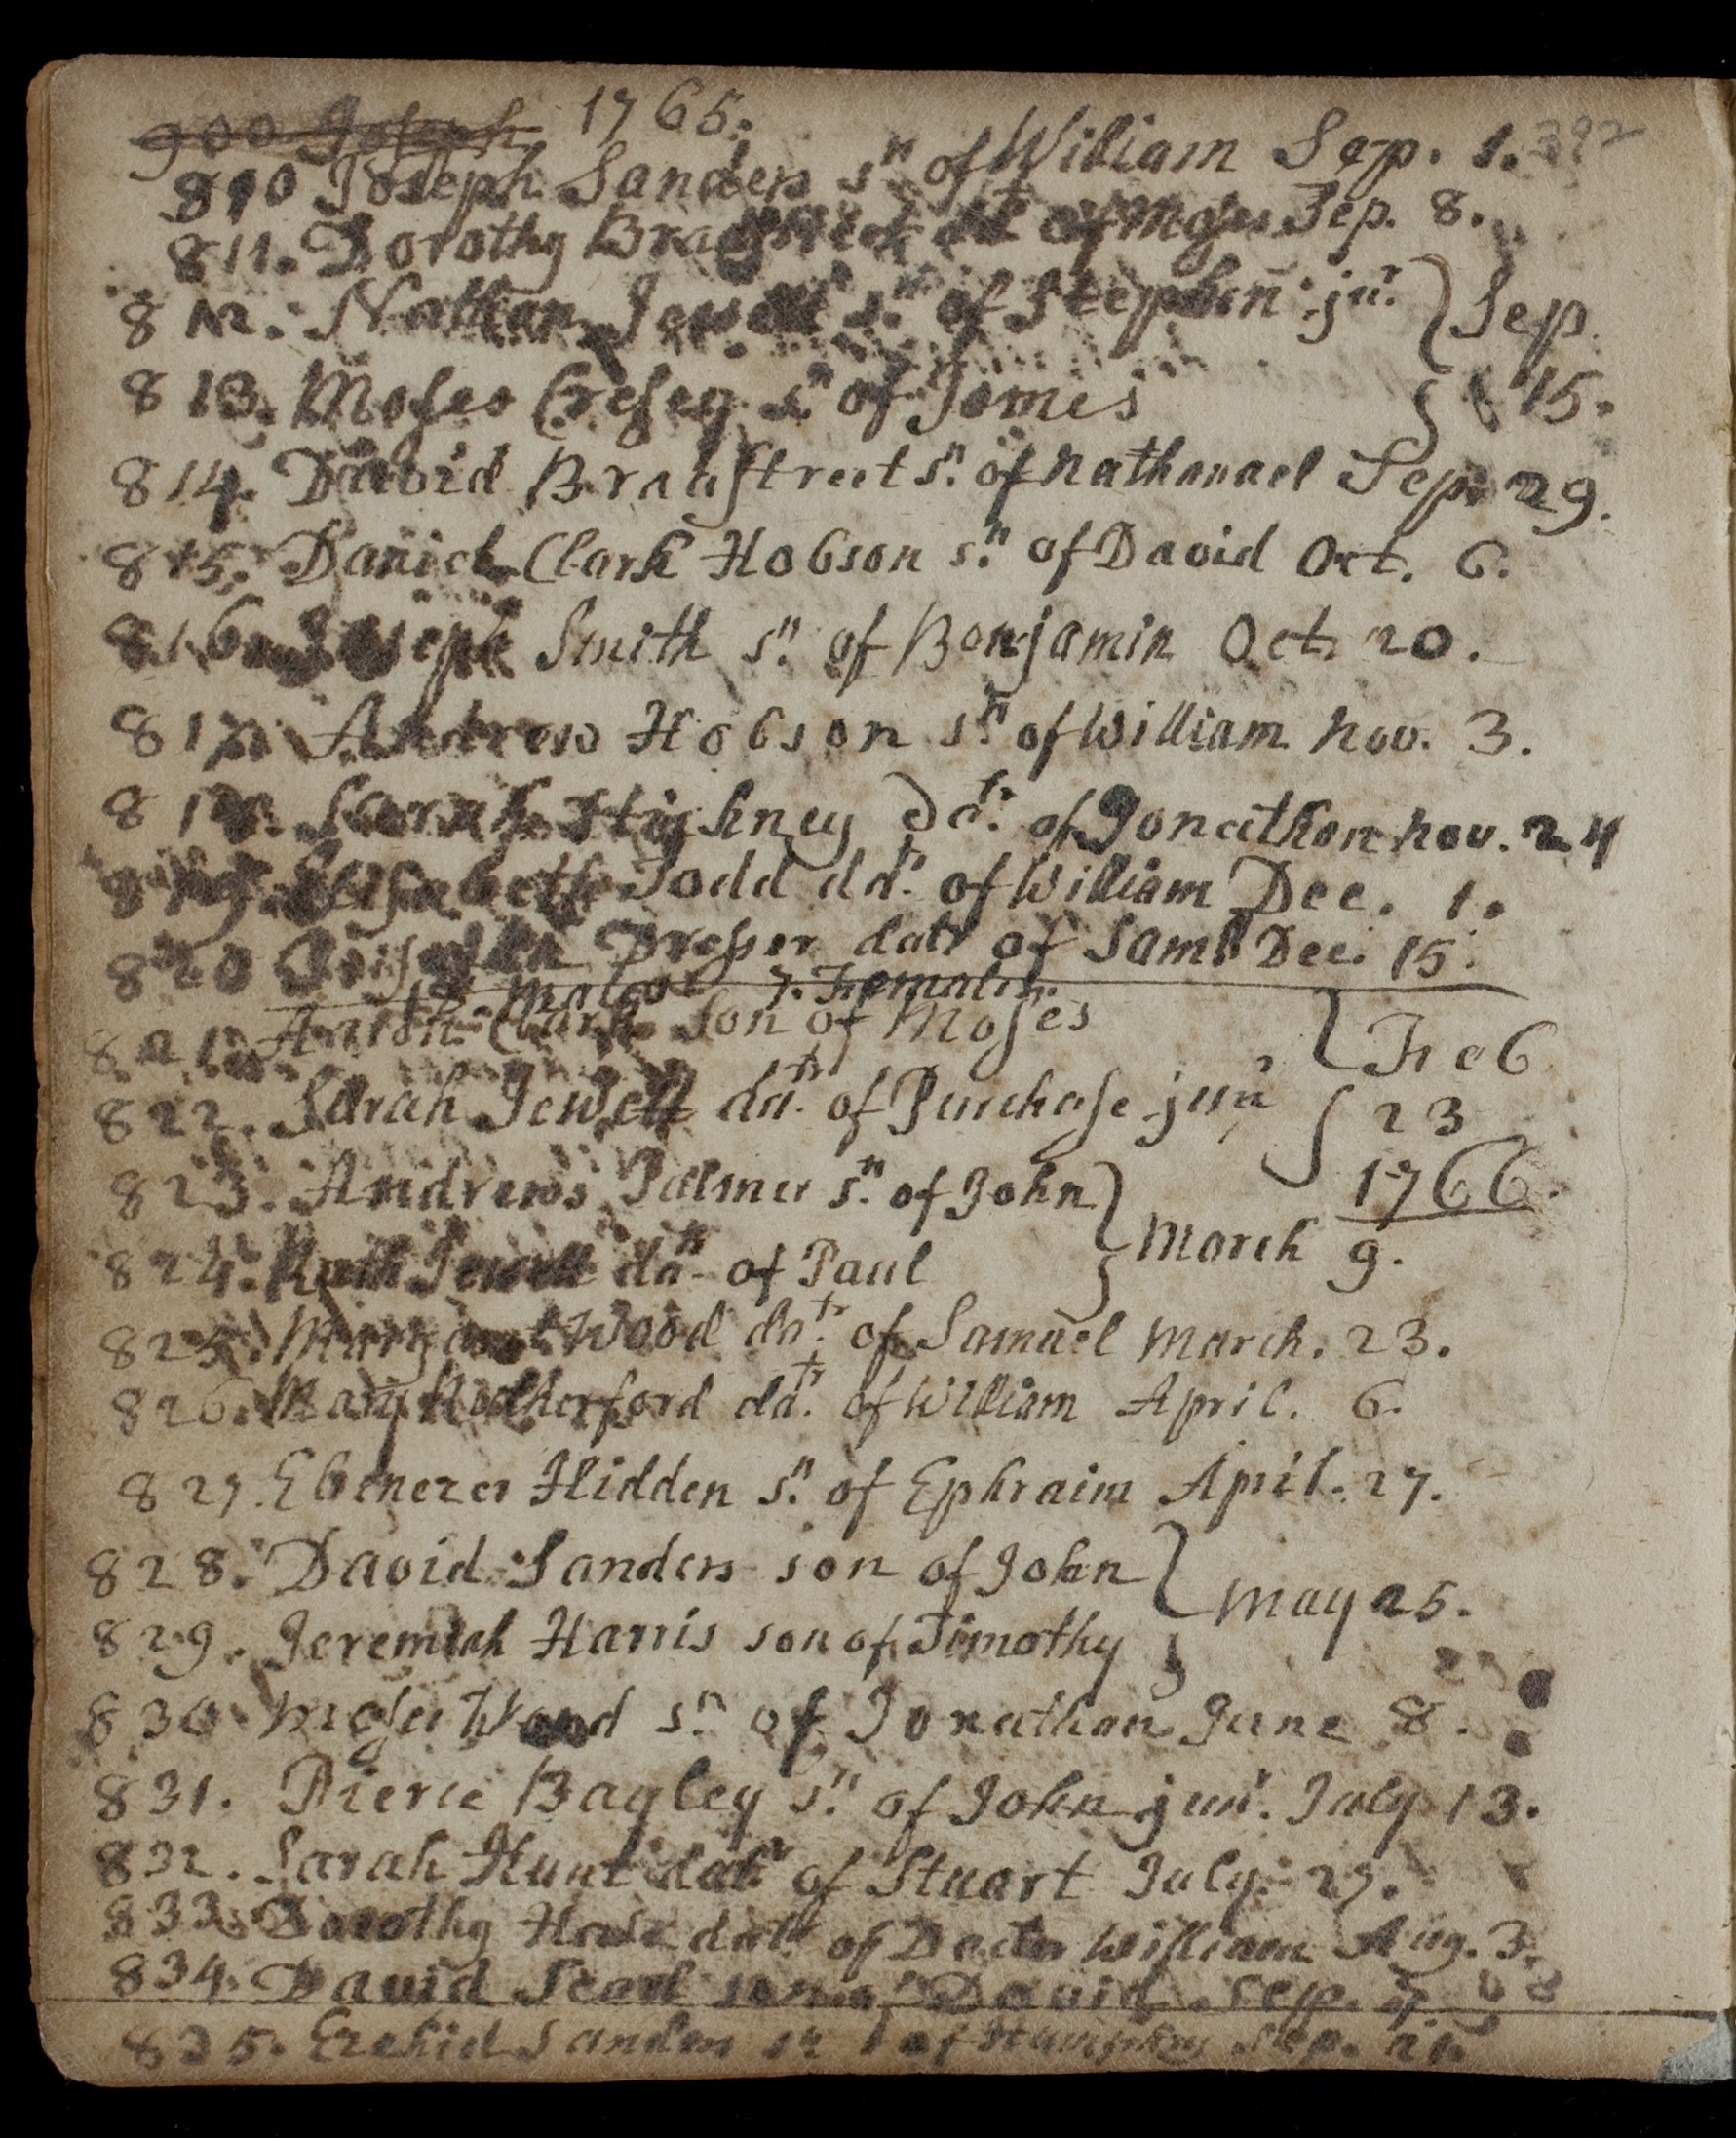 900 Joseph 1765.
392
810 Joseph Sanders sn of William Sep. 1.
811. Dorothy Bradstreet dtr of Moses Sep. 8.
812. Nathan Jewett sn. of Stephen jur. } Sep.
813. Moses Cresey sn. of James } 15.
814. David Bradstreet sn. of Nathanael Sep. 29.
815. Daniel Clark Hobson sn. of David Oct. 6.
816. Joseph Smith sn. of Benjamin Oct. 20.
817. Andrew Hobson sn. of William nov. 3.
818. Sarah Stickney datr. of Jonathan nov. 24
819. Elisabeth Todd datr. of William Dec. 1.
820 Dresser datr of Saml. Dec. 15.
Males 7. Females.
821. Aaron Clark Son of Moses } Feb
822. Sarah Jewett datr. of Purchase junr } 23
1766.
823. Andrews Palmer sn. of John }
824. Ruth Jewett datr. of Paul } March 9.
825. Margaret Wood datr. of Samuel March. 23.
826. Mary Rutherford datr. of William April. 6.
827. Ebenezer Hidden sn. of Ephraim April. 27.
828. David Sanders son of John } may 25.
829. Jeremiah Harris son of Timothy }
830. Moses Wood sn. of Jonathan June 8.
831. Pierce Bagley sn. of John junr. July 13.
832. Sarah Hunt datr. of Stuart July. 27.
833. Dorothy Hale datr. of Doctr William Aug. 3.
834. David Searl son of David. Sep.
835. Ezekiel Sanders sn of Humphry Sep. 21.